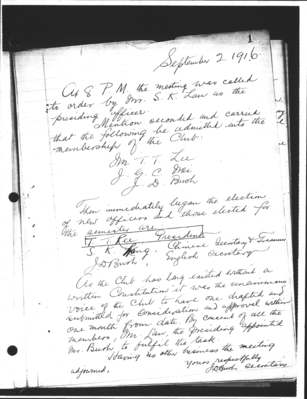 1
September 2 1916
At 8 P.M. the meeting was called
to order by Mr. S. K. Lau as the
presiding officer.
Motion seconded and carried
that the following be admitted into the
membership of the Club:
Mr. T. T. Lee
J. G. C.
J. D. Bush
Then immediately began the election
of new officers and those elected for
the semester are
President
S. K. Chinese Secretary & Treasurer
J. D. Bush, English Secretary
As the Club has long existed without a
written Constitution it was the unanimous
voice of the Club to have one drafted and
submitted for consideration and approval within
one month from date. By consent of all the
members, Mr. Lau, the presiding appointed
Mr. Bush to fulfil the task.
Having no other business the meeting
adjourned.
Yours respectfully
J D Bush Secretary